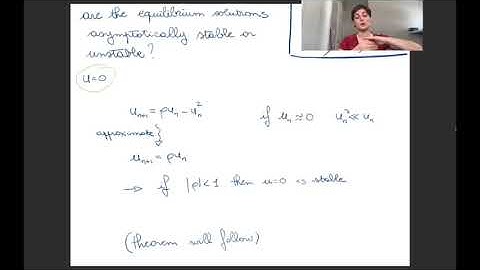 are the equilibrium solutions
asymptotically stable or
unstable?
u=0
uₙ₊₁ = ρuₙ - uₙ² if uₙ ≈ 0 uₙ² ≪ uₙ
approximate
uₙ₊₁ = ρuₙ
→ if |ρ|<1 then u=0 is stable
(theorem will follow)